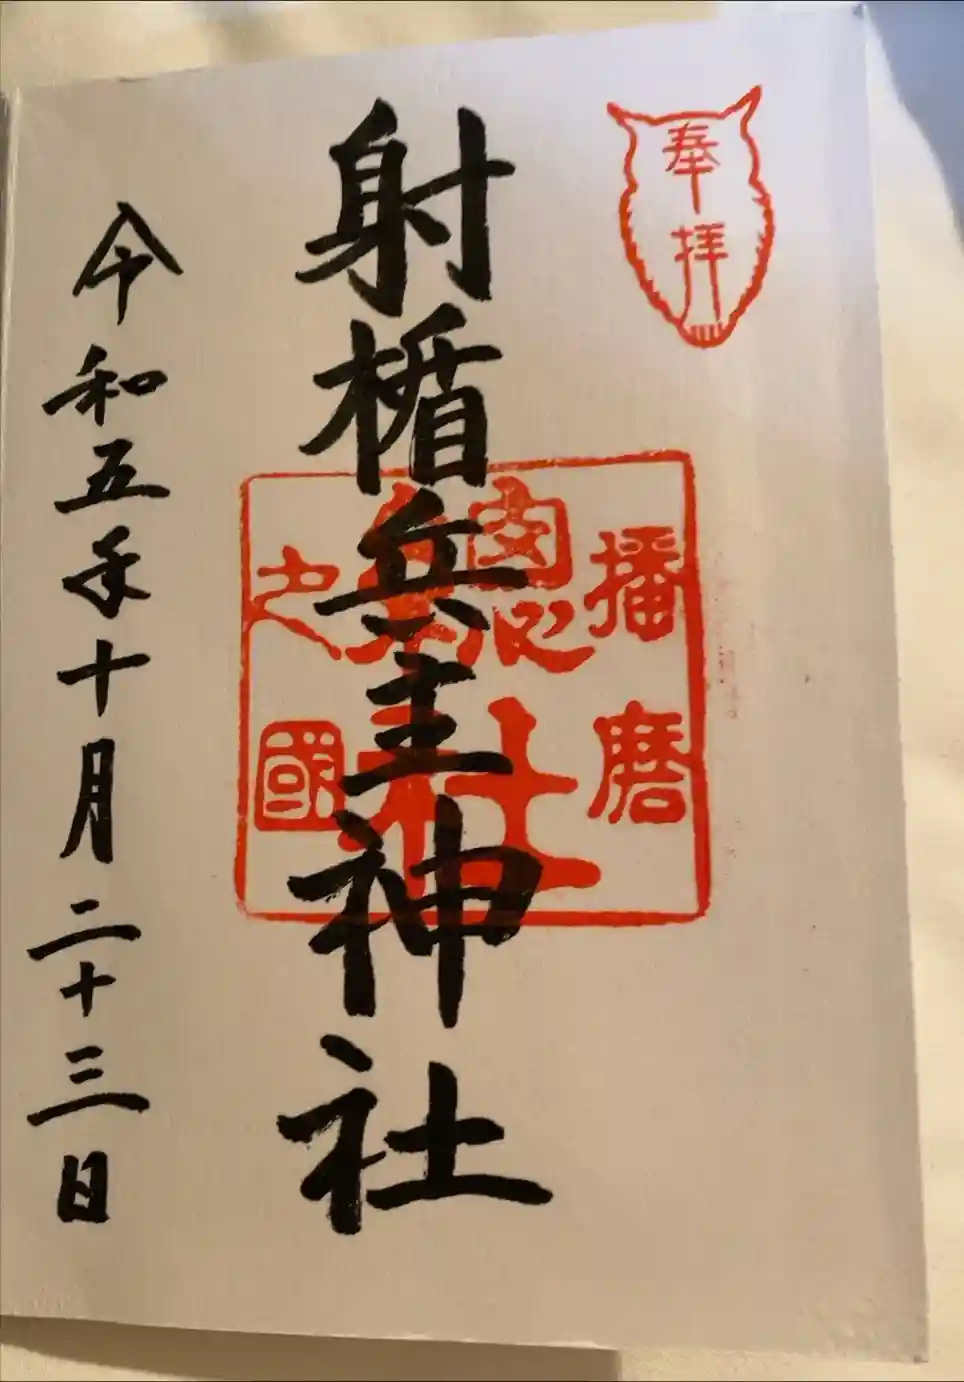 奉拝
射楯兵主神社
播磨
惣社
之國
令和五年十月二十三日